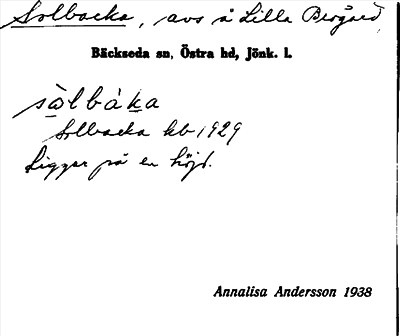 Solbacka, avs å Lilla Bergård,
Bäckseda sn, Östra hd, Jönk. l.
sòlbáka
Solbacka kb 1929
Ligger på en höjd.
Annalisa Andersson 1938